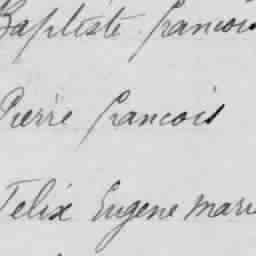 Baptiste francois
Pierre francois
Felix Eugene marie